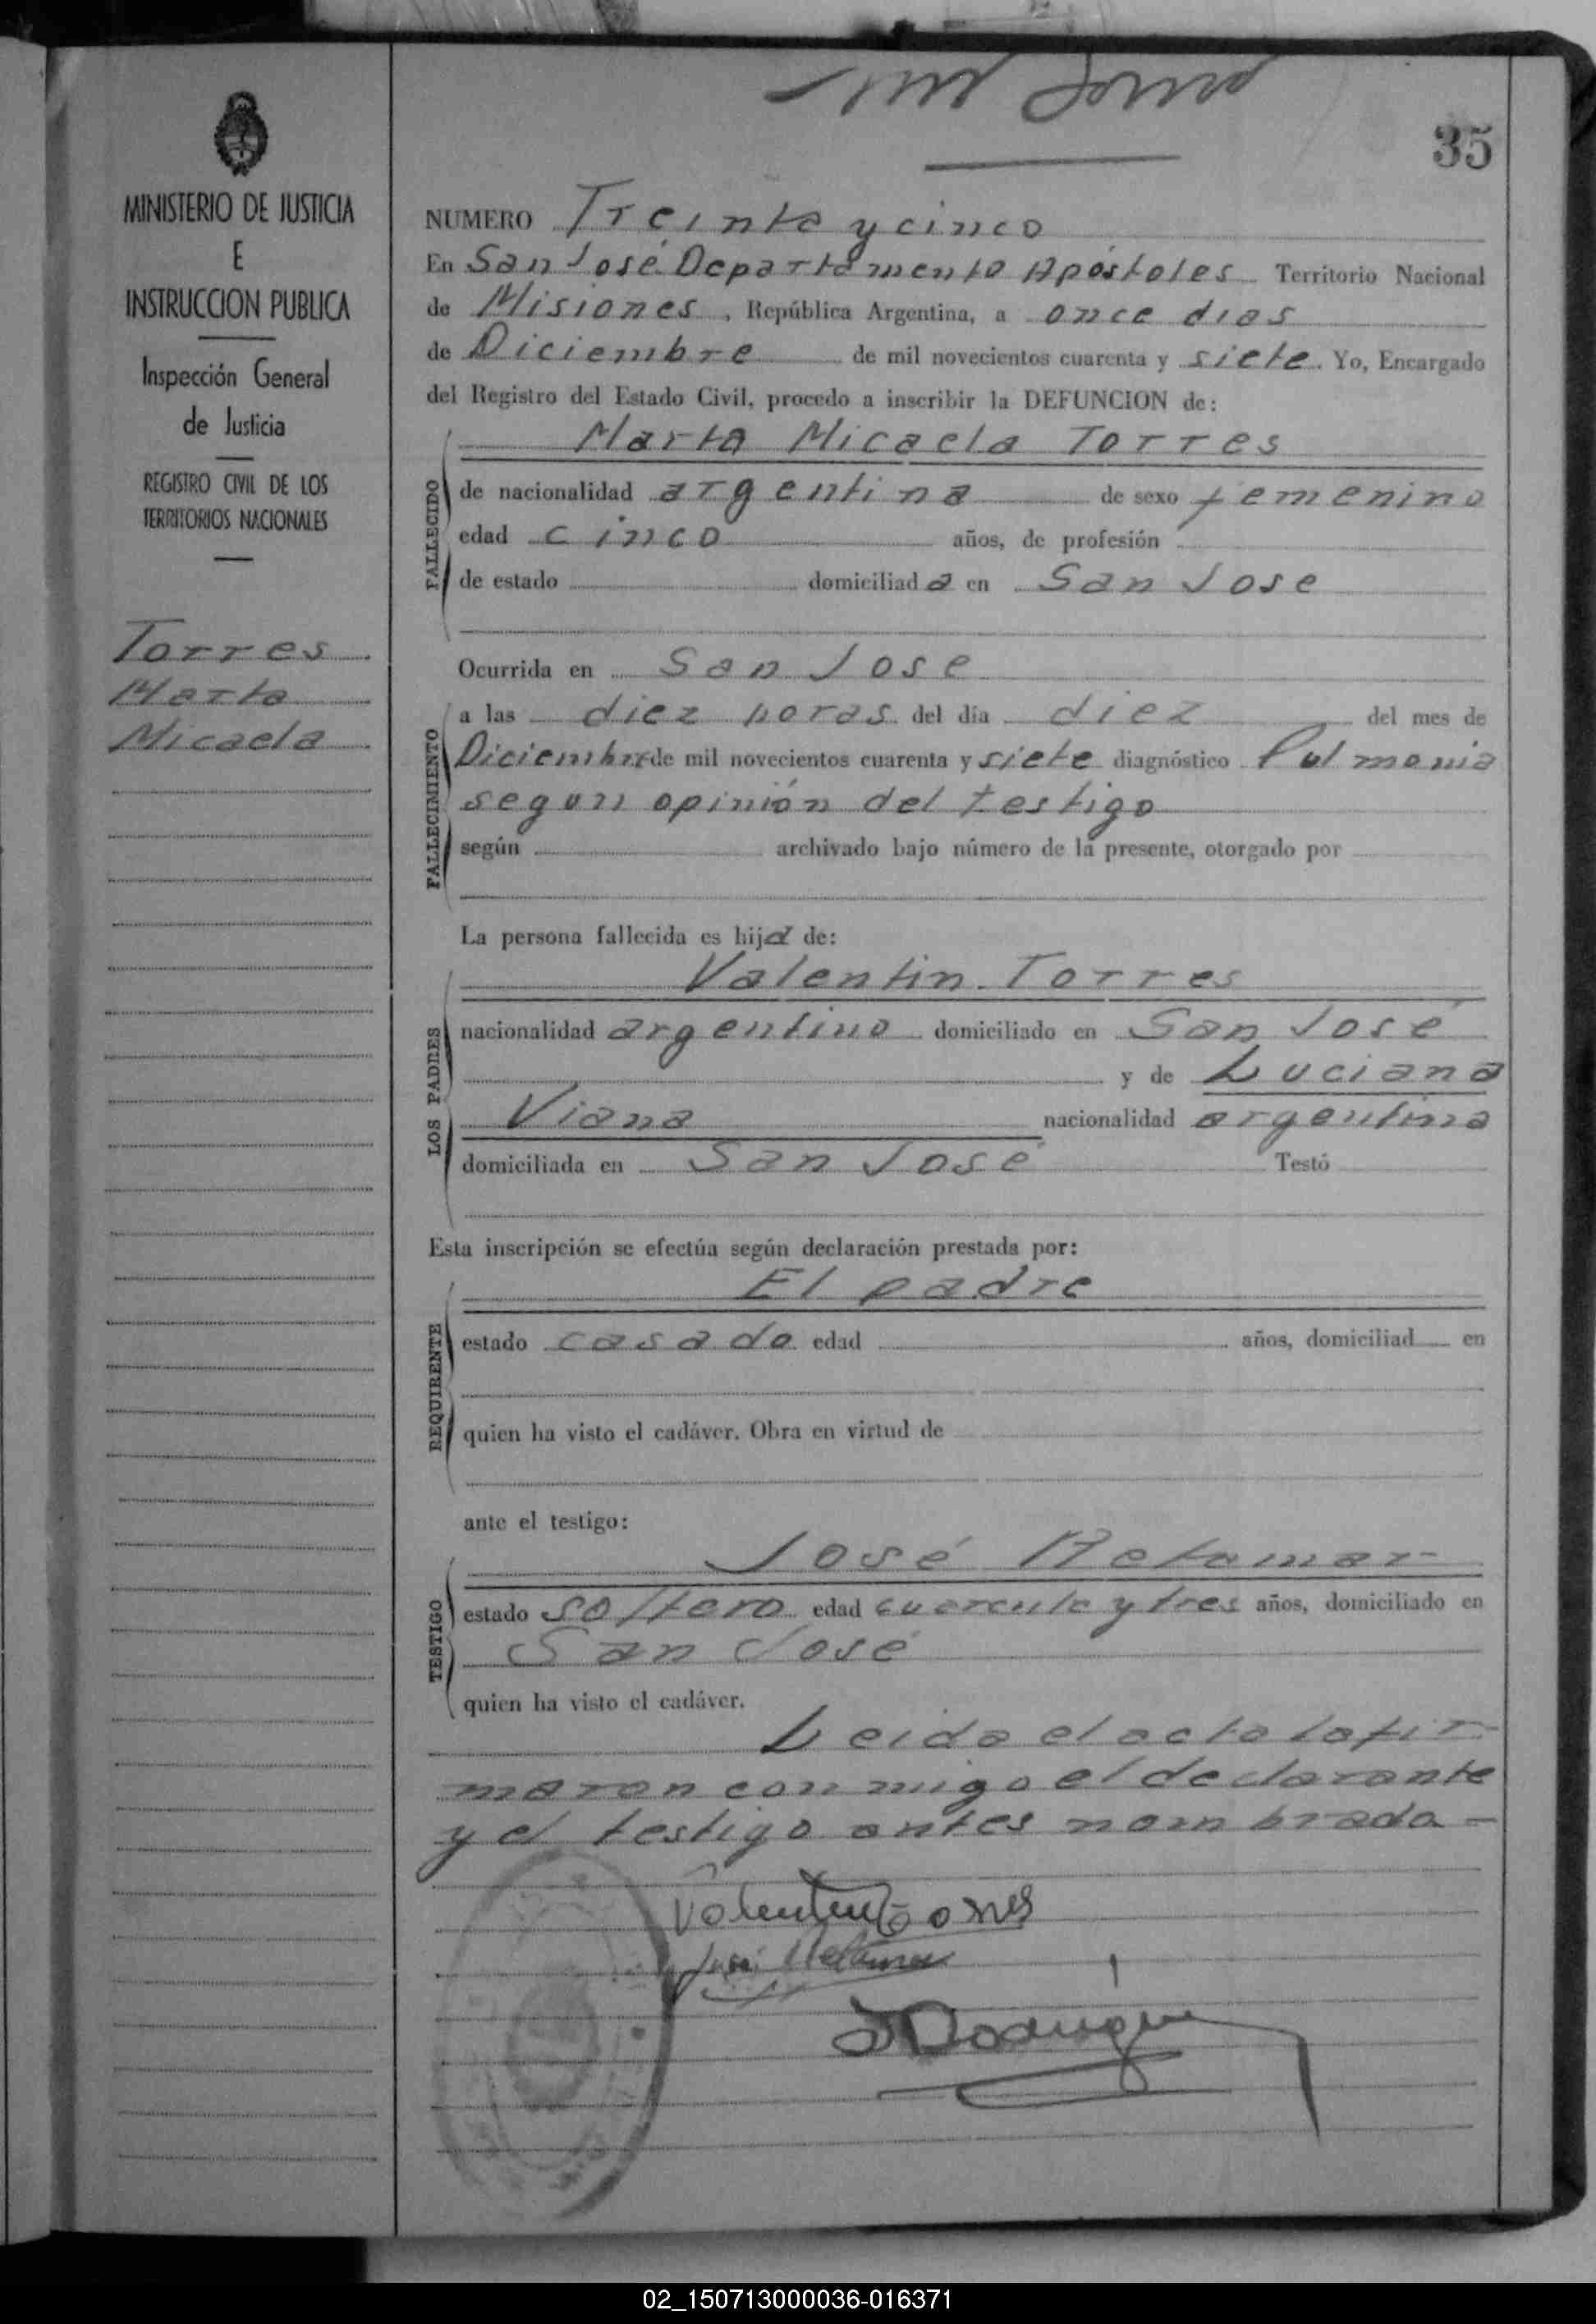 San José
35
MINISTERIO DE JUSTICIA
E
INSTRUCCION PUBLICA
Inspección General
de Justicia
REGISTRO CIVIL DE LOS
TERRITORIOS NACIONALES
Torres
Marta
Micaela
NUMERO Treinta y cinco
En San José Departamento Apóstoles Territorio Nacional
de Misiones, República Argentina, a once dias
de Diciembre de mil novecientos cuarenta y siete. Yo, Encargado
del Registro del Estado Civil, procedo a inscribir la DEFUNCION de:
Marta Micaela Torres
FALLECIDO
de nacionalidad argentina de sexo femenino
edad cinco años, de profesión
de estado domiciliada en San Jose
Ocurrida en San Jose
FALLECIMIENTO
a las diez horas del día diez del mes de
Diciembre de mil novecientos cuarenta y siete diagnóstico Pulmonia
segun opinión del testigo
según archivado bajo número de la presente, otorgado por
La persona fallecida es hija de:
LOS PADRES
Valentin Torres
nacionalidad argentino domiciliado en San José
y de Luciana
Viana nacionalidad argentina
domiciliada en San José Testó
Esta inscripción se efectúa según declaración prestada por:
REQUIRENTE
El padre
estado casado edad años, domiciliad en
quien ha visto el cadáver. Obra en virtud de
ante el testigo:
TESTIGO
José Retamar
estado soltero edad cuarenta y tres años, domiciliado en
San José
quien ha visto el cadáver.
Leida el acta la fir
maron conmigo el declarante
y el testigo antes nombrado -
Valentin Torres
José Retamar
02_150713000036-016371